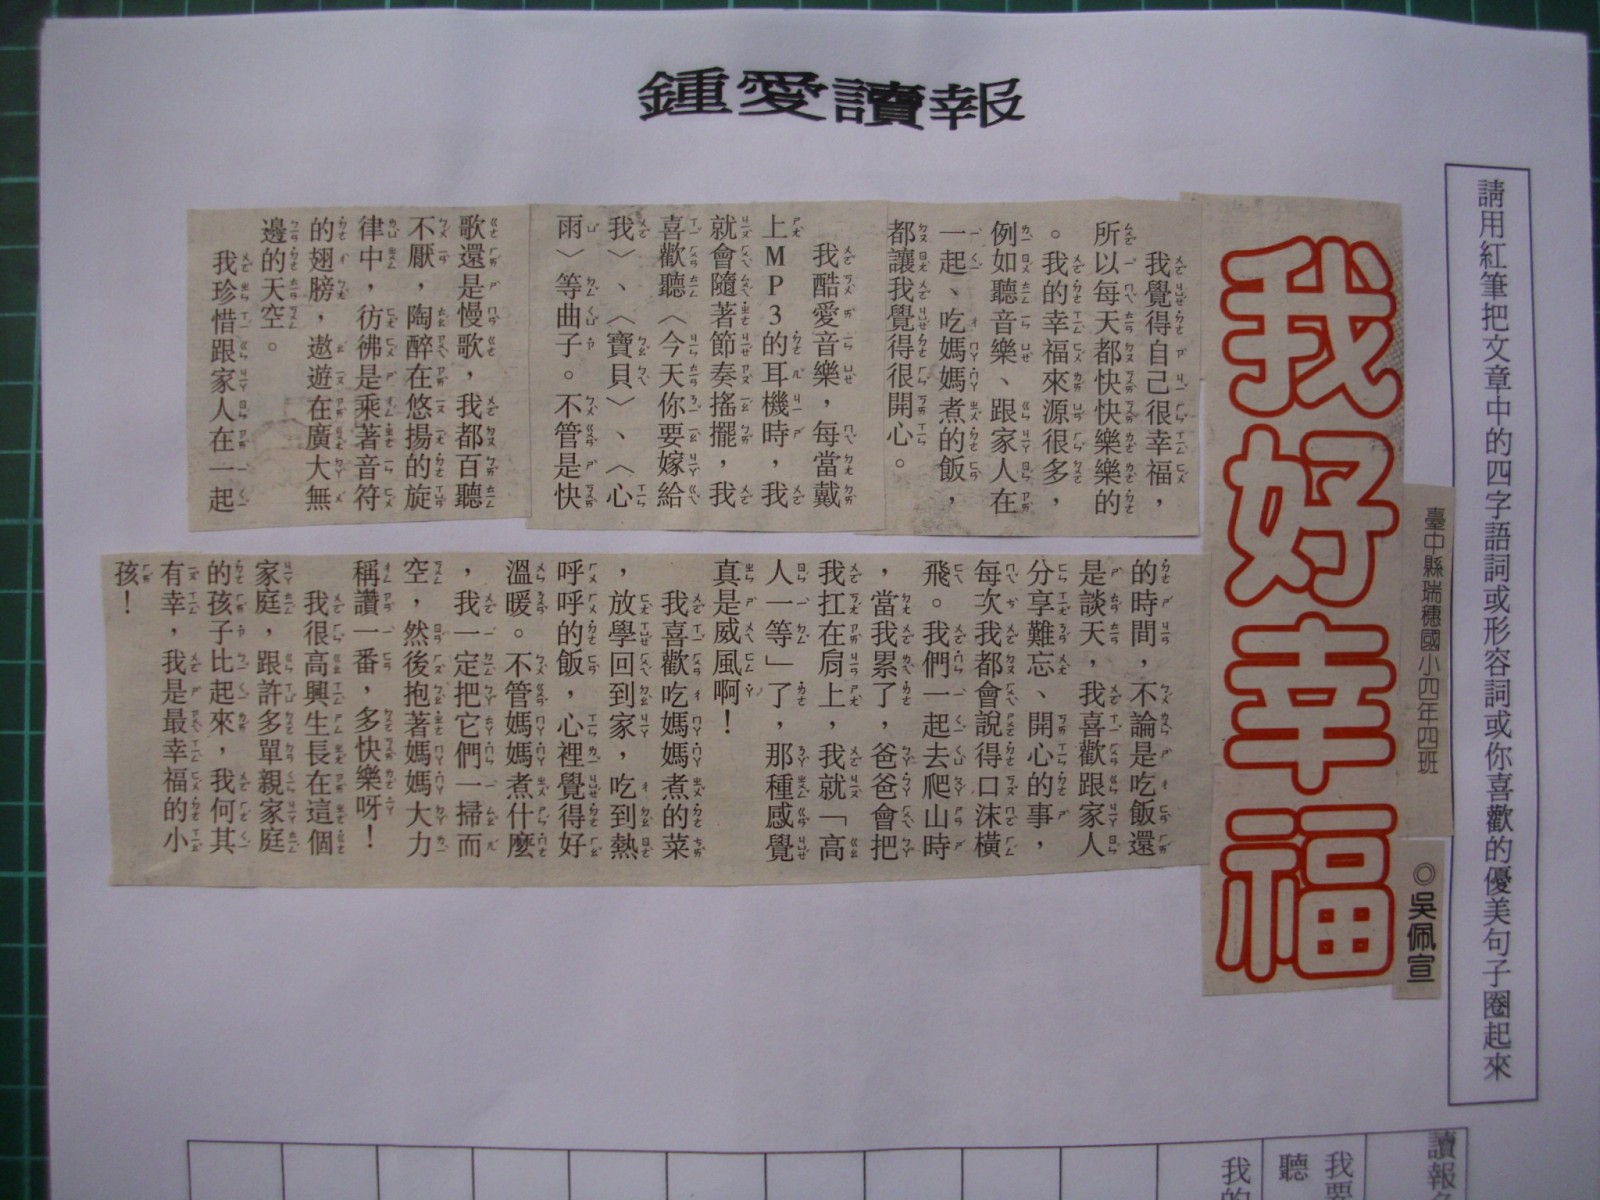 鍾愛讀報
請用紅筆把文章中的四字語詞或形容詞或你喜歡的優美句子圈起來
我好幸福
臺中縣瑞穗國小四年四班
◎吳佩宣
我覺得自己很幸福，
所以每天都快快樂樂的
。我的幸福來源很多，
例如聽音樂、跟家人在
一起、吃媽媽煮的飯，
都讓我覺得很開心。
我酷愛音樂，每當戴
上MP3的耳機時，我
就會隨著節奏搖擺，我
喜歡聽〈今天你要嫁給
我〉、〈寶貝〉、〈心
雨〉等曲子。不管是快
歌還是慢歌，我都百聽
不厭，陶醉在悠揚的旋
律中，彷彿是乘著音符
的翅膀，遨遊在廣大無
邊的天空。
我珍惜跟家人在一起
的時間，不論是吃飯還
是談天，我喜歡跟家人
分享難忘、開心的事，
每次我都會說得口沫橫
飛。我們一起去爬山時
，當我累了，爸爸會把
我扛在肩上，我就「高
人一等」了，那種感覺
真是威風啊！
我喜歡吃媽媽煮的菜
，放學回到家，吃到熱
呼呼的飯，心裡覺得好
溫暖。不管媽媽煮什麼
，我一定把它們一掃而
空，然後抱著媽媽大力
稱讚一番，多快樂呀！
我很高興生長在這個
家庭，跟許多單親家庭
的孩子比起來，我何其
有幸，我是最幸福的小
孩！
讀報
我要
聽
我的